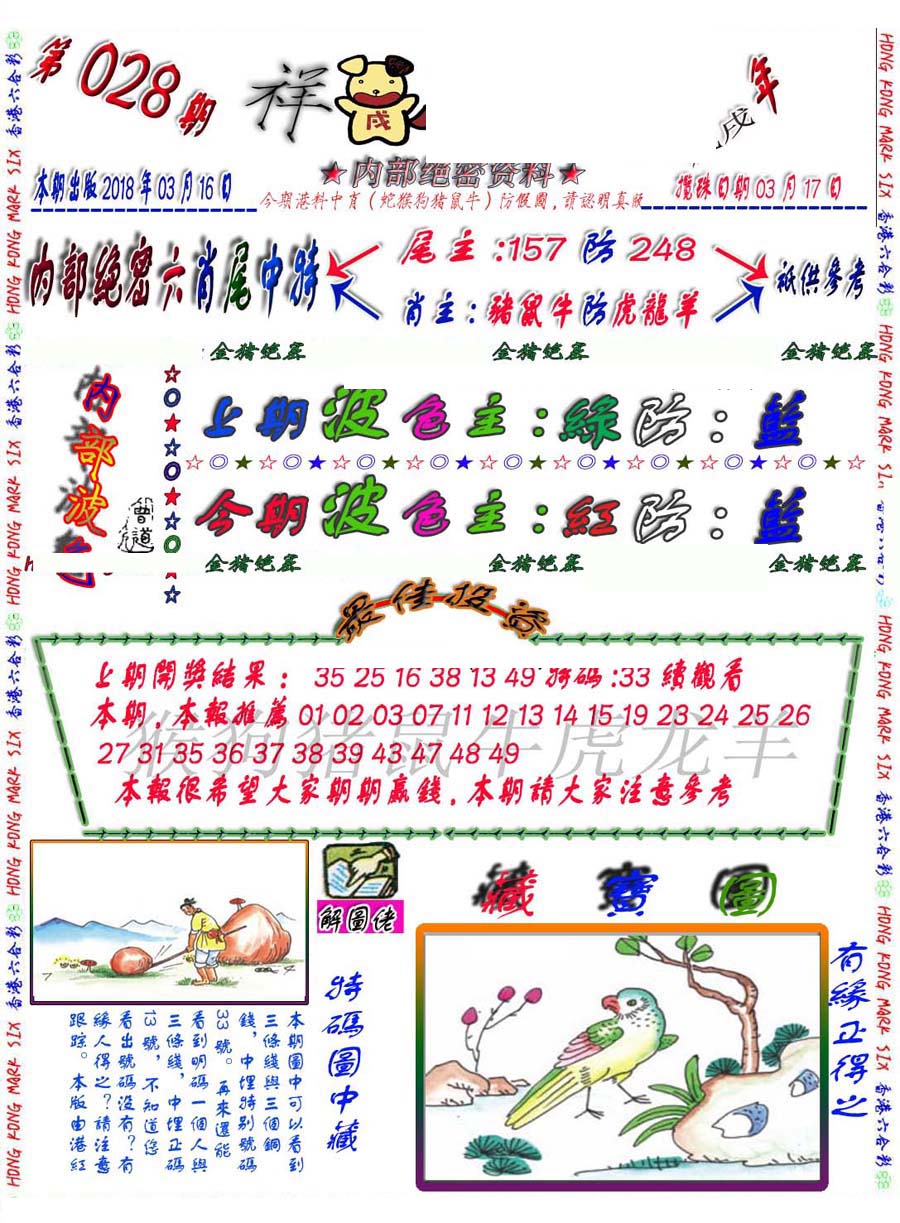 第028期
祥
戌
戌年
本期出版2018年03月16日
★内部绝密资料★
攪珠日期03月17日
今期港料中肖（蛇猴狗猪鼠牛）防假圖,請認明真版
内部絶密六肖尾中特
尾主:157防248
肖主:豬鼠牛防虎龍羊
祇供參考
金猪绝密 金猪绝密 金猪绝密
内部波色
曾道
上期波色主:綠防:藍
今期波色主:紅防:藍
金猪绝密 金猪绝密 金猪绝密
最佳投註
上期開獎結果: 35 25 16 38 13 49 特碼:33 續觀看
本期,本報推薦 01 02 03 07 11 12 13 14 15 19 23 24 25 26
27 31 35 36 37 38 39 43 47 48 49
猴狗猪鼠牛虎龙羊
本報很希望大家期期贏錢,本期請大家注意參考
解圖佬
藏寶圖
7
4
特碼圖中藏
有緣正得之
本期圖中可以看到
三條綫與三個銅
錢，中埋特别號碼
33號。再來還能
看到明碼一個人與
三條綫，中埋正碼
13號，不知道您
看出號碼没有？有
緣人得之？請注意
跟踪。本版由港紅
香港六合彩 HONG KONG MARK SIX 香港六合彩 HONG KONG MARK SIX 香港六合彩 HONG KONG MARK SIX 香港六合彩 HONG KONG MARK SIX
HONG KONG MARK SIX 香港六合彩 HONG KONG MARK SIX HONG KONG MARK SIX 香港六合彩 HONG KONG MARK SIX 香港六合彩